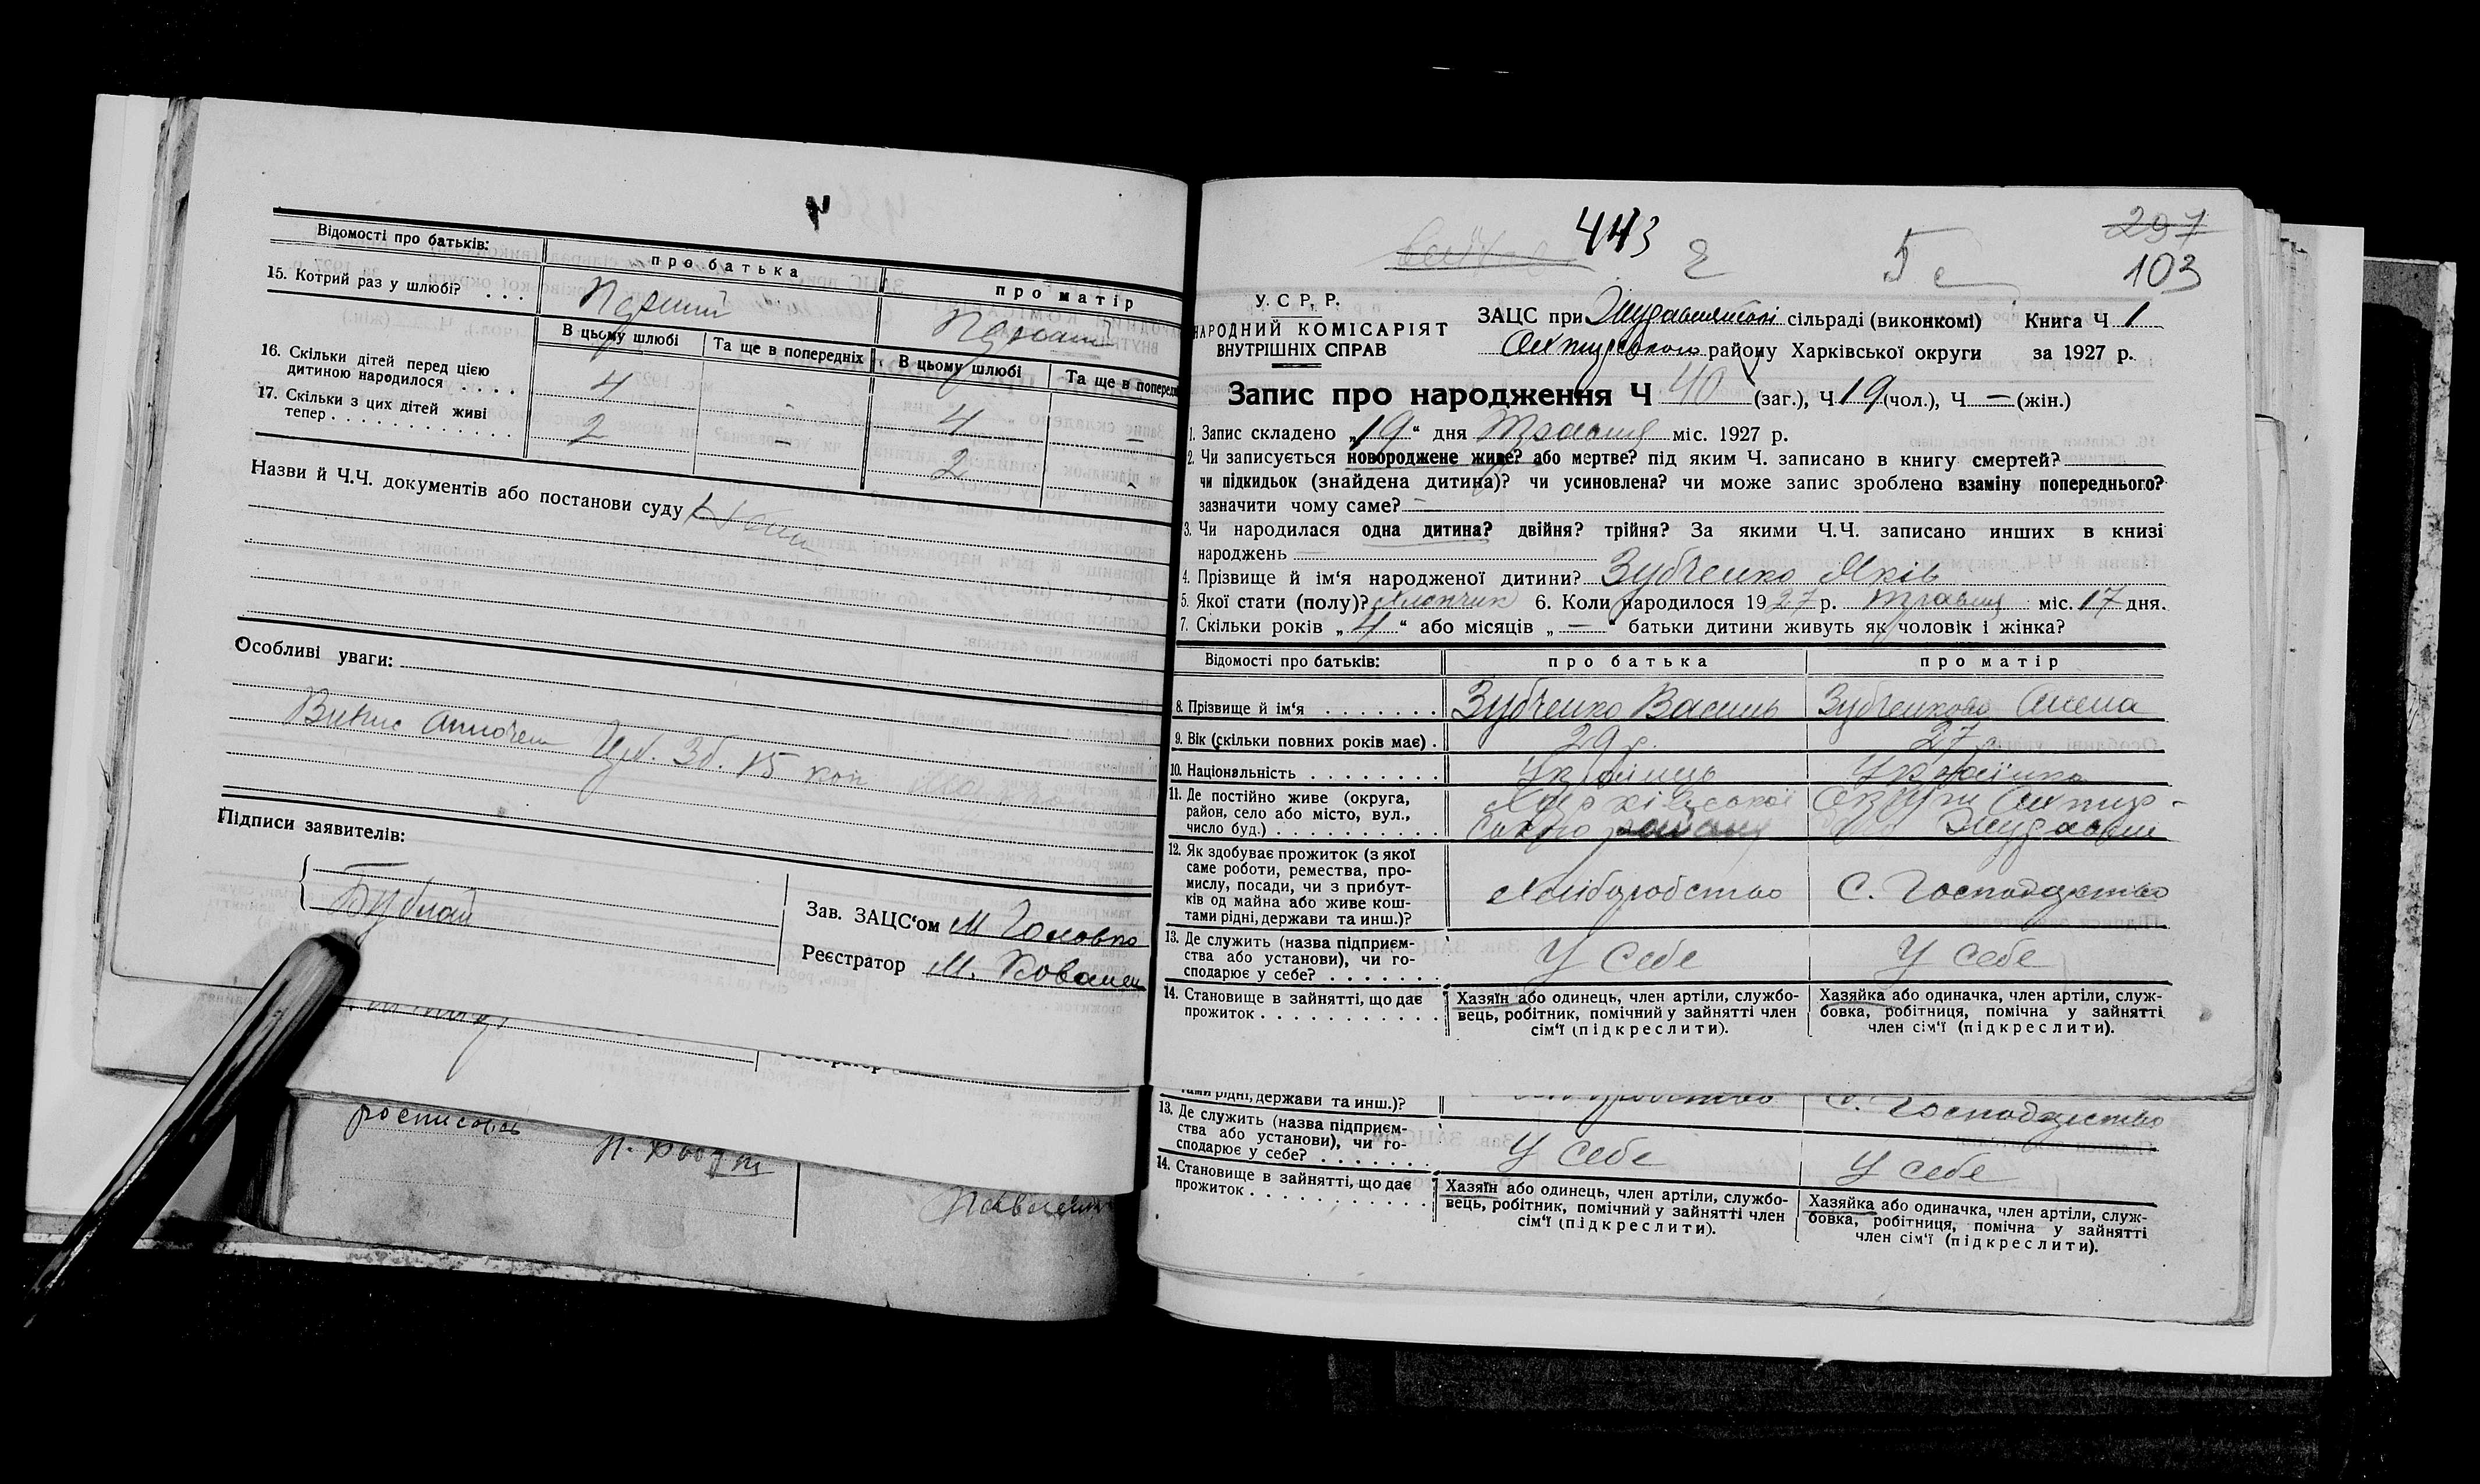 Відомості про батьків:
про батька
про матір
15. Котрий раз у шлюбі? . . .
Перший
В цьому шлюбі
Та ще в попередніх
В цьому шлюбі
16. Скільки дітей перед цією
дитиною народилося . . . .
4
-
4
–
17. Скільки з цих дітей живі
тепер . . . . . . . . . . . .
2
–
2
Назви й Ч.Ч. документів або постанови суду
Особливі уваги:
Витис Цер. Зб. 15 коп
Підписи заявителів:
Зав. ЗАЦС'ом М Головко
Реєстратор М.
росписалсь
443
5
297
103
У. С. Р. Р.
НАРОДНИЙ КОМІСАРІЯТ
ВНУТРІШНІХ СПРАВ
ЗАЦС при Журавненській сільраді (виконкомі) Книга Ч 1
Охтирського району Харківської округи за 1927 р.
Запис про народження Ч 40 (заг.), Ч 19 (чол.), Ч — (жін.)
1. Запис складено „19“ дня Травня міс. 1927 р.
2. Чи записується новороджене живе? або мертве? під яким Ч. записано в книгу смертей?
чи підкидьок (знайдена дитина)? чи усиновлена? чи може запис зроблено взаміну попереднього?
зазначити чому саме? –
3. Чи народилася одна дитина? двійня? трійня? За якими Ч.Ч. записано инших в книзі
народжень —
4. Прізвище й ім'я народженої дитини? Зубченко Яків
5. Якої стати (полу)? Хлопчик 6. Коли народилося 1927 р. травня міс. 17 дня.
7. Скільки років „4“ або місяців „—“ батьки дитини живуть як чоловік і жінка?
Відомості про батьків:
про батька
про матір
8. Прізвище й ім'я . . . . . . .
Зубченко Василь
Зубченкова
9. Вік (скільки повних років має) .
29 р.
27 р.
10. Національність . . . . . . . .
Українець
Українка
11. Де постійно живе (округа,
район, село або місто, вул.,
число буд.) . . . . . . . . . .
Харківської Округи Охтир-
ського району Журавне
12. Як здобуває прожиток (з якої
саме роботи, ремества, про-
мислу, посади, чи з прибут-
ків од майна або живе кош-
тами рідні, держави та инш.)?
Хліборобство
С. Господарство
13. Де служить (назва підприєм-
ства або установи), чи го-
сподарює у себе? . . . . . . .
У себе
У себе
14. Становище в зайнятті, що дає
прожиток . . . . . . . . . . . .
Хазяїн або одинець, член артіли, службо-
вець, робітник, помічний у зайнятті член
сім'ї (підкреслити).
Хазяйка або одиначка, член артіли, служ-
бовка, робітниця, помічна у зайнятті
член сім'ї (підкреслити).
тами рідні, держави та инш.)?
С. Господарство
13. Де служить (назва підприєм-
ства або установи), чи го-
сподарює у себе? . . . . . . .
У себе
У себе
14. Становище в зайнятті, що дає
прожиток . . . . . . . . . . . .
Хазяїн або одинець, член артіли, службо-
вець, робітник, помічний у зайнятті член
сім'ї (підкреслити).
Хазяйка або одиначка, член артіли, служ-
бовка, робітниця, помічна у зайнятті
член сім'ї (підкреслити).